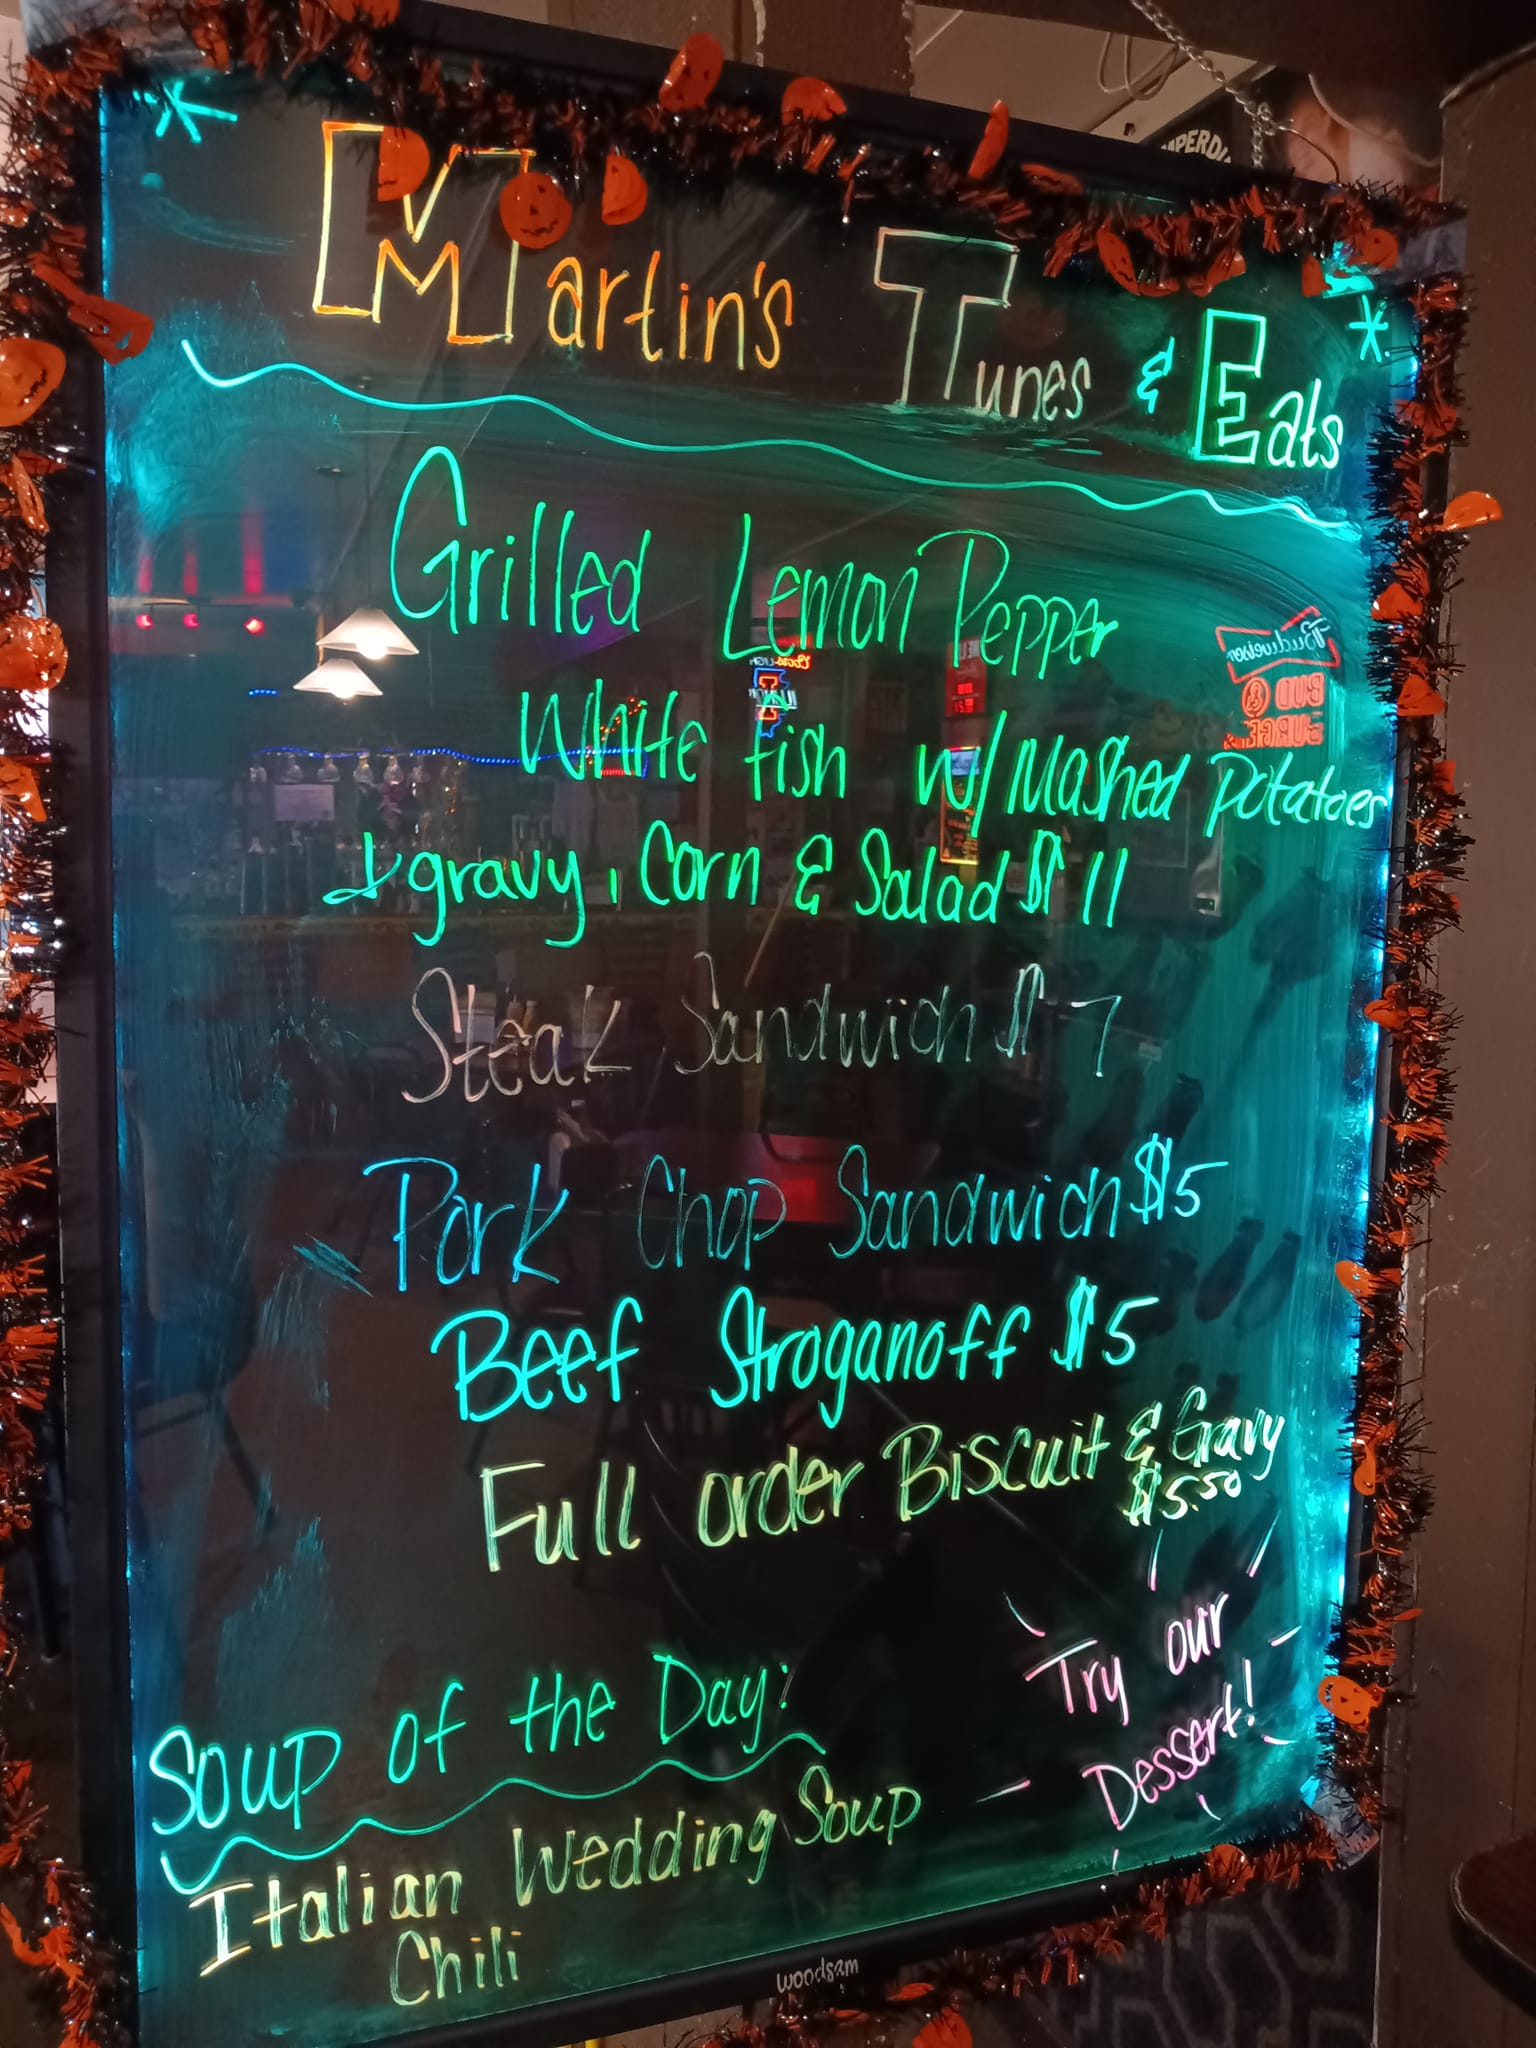 Martin's Tunes & Eats
Grilled Lemon Pepper
White fish w/ Mashed Potatoes
& gravy, Corn & Salad $11
Steak Sandwich $7
Pork Chop Sandwich $5
Beef Stroganoff $5
Full order Biscuit & Gravy
$5.50
Try our
Dessert!
Soup of the Day:
Italian Wedding Soup
Chili
woodsam
Budweiser
BUD